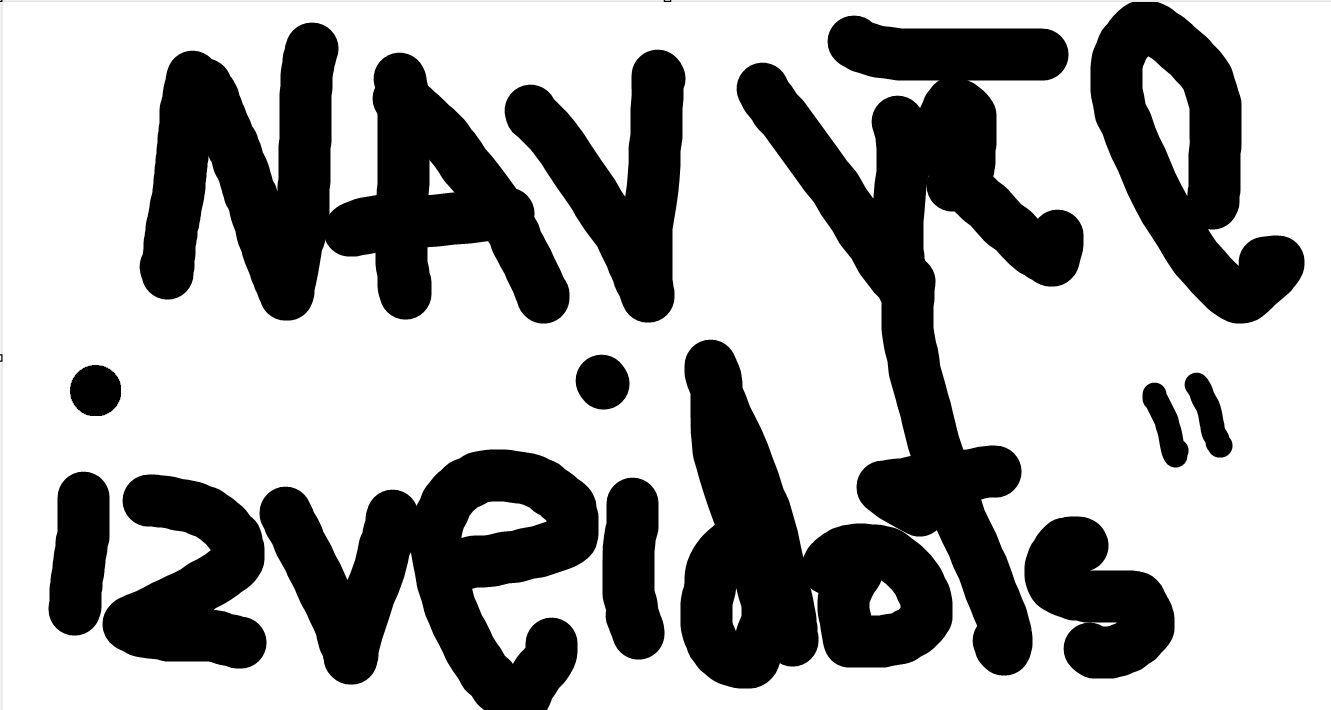 NAV vēl
izveidots"